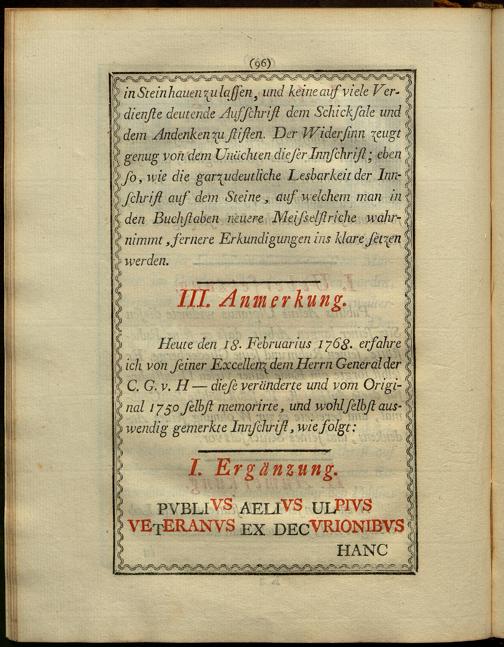 (96)
in Stein hauen zu lassen, und keine auf viele Ver-
dienste deutende Aufschrift dem Schicksale und
dem Andenken zu stiften. Der Widersinn zeugt
genug von dem Unächten dieser Innschrift; eben
so, wie die gar zu deutliche Lesbarkeit der Inn-
schrift auf dem Steine, auf welchem man in
den Buchstaben neuere Meisselstriche wahr-
nimmt, fernere Erkundigungen ins klare setzen
werden.
III. Anmerkung.
Heute den 18. Februarius 1768. erfahre
ich von seiner Excellenz dem Herrn General der
C. G. v. H — diese veränderte und vom Origi-
nal 1750 selbst memorirte, und wohl selbst aus-
wendig gemerkte Innschrift, wie folgt:
I. Ergänzung.
PVBLIVS AELIVS ULPIVS
VETERANVS EX DECVRIONIBVS
HANC